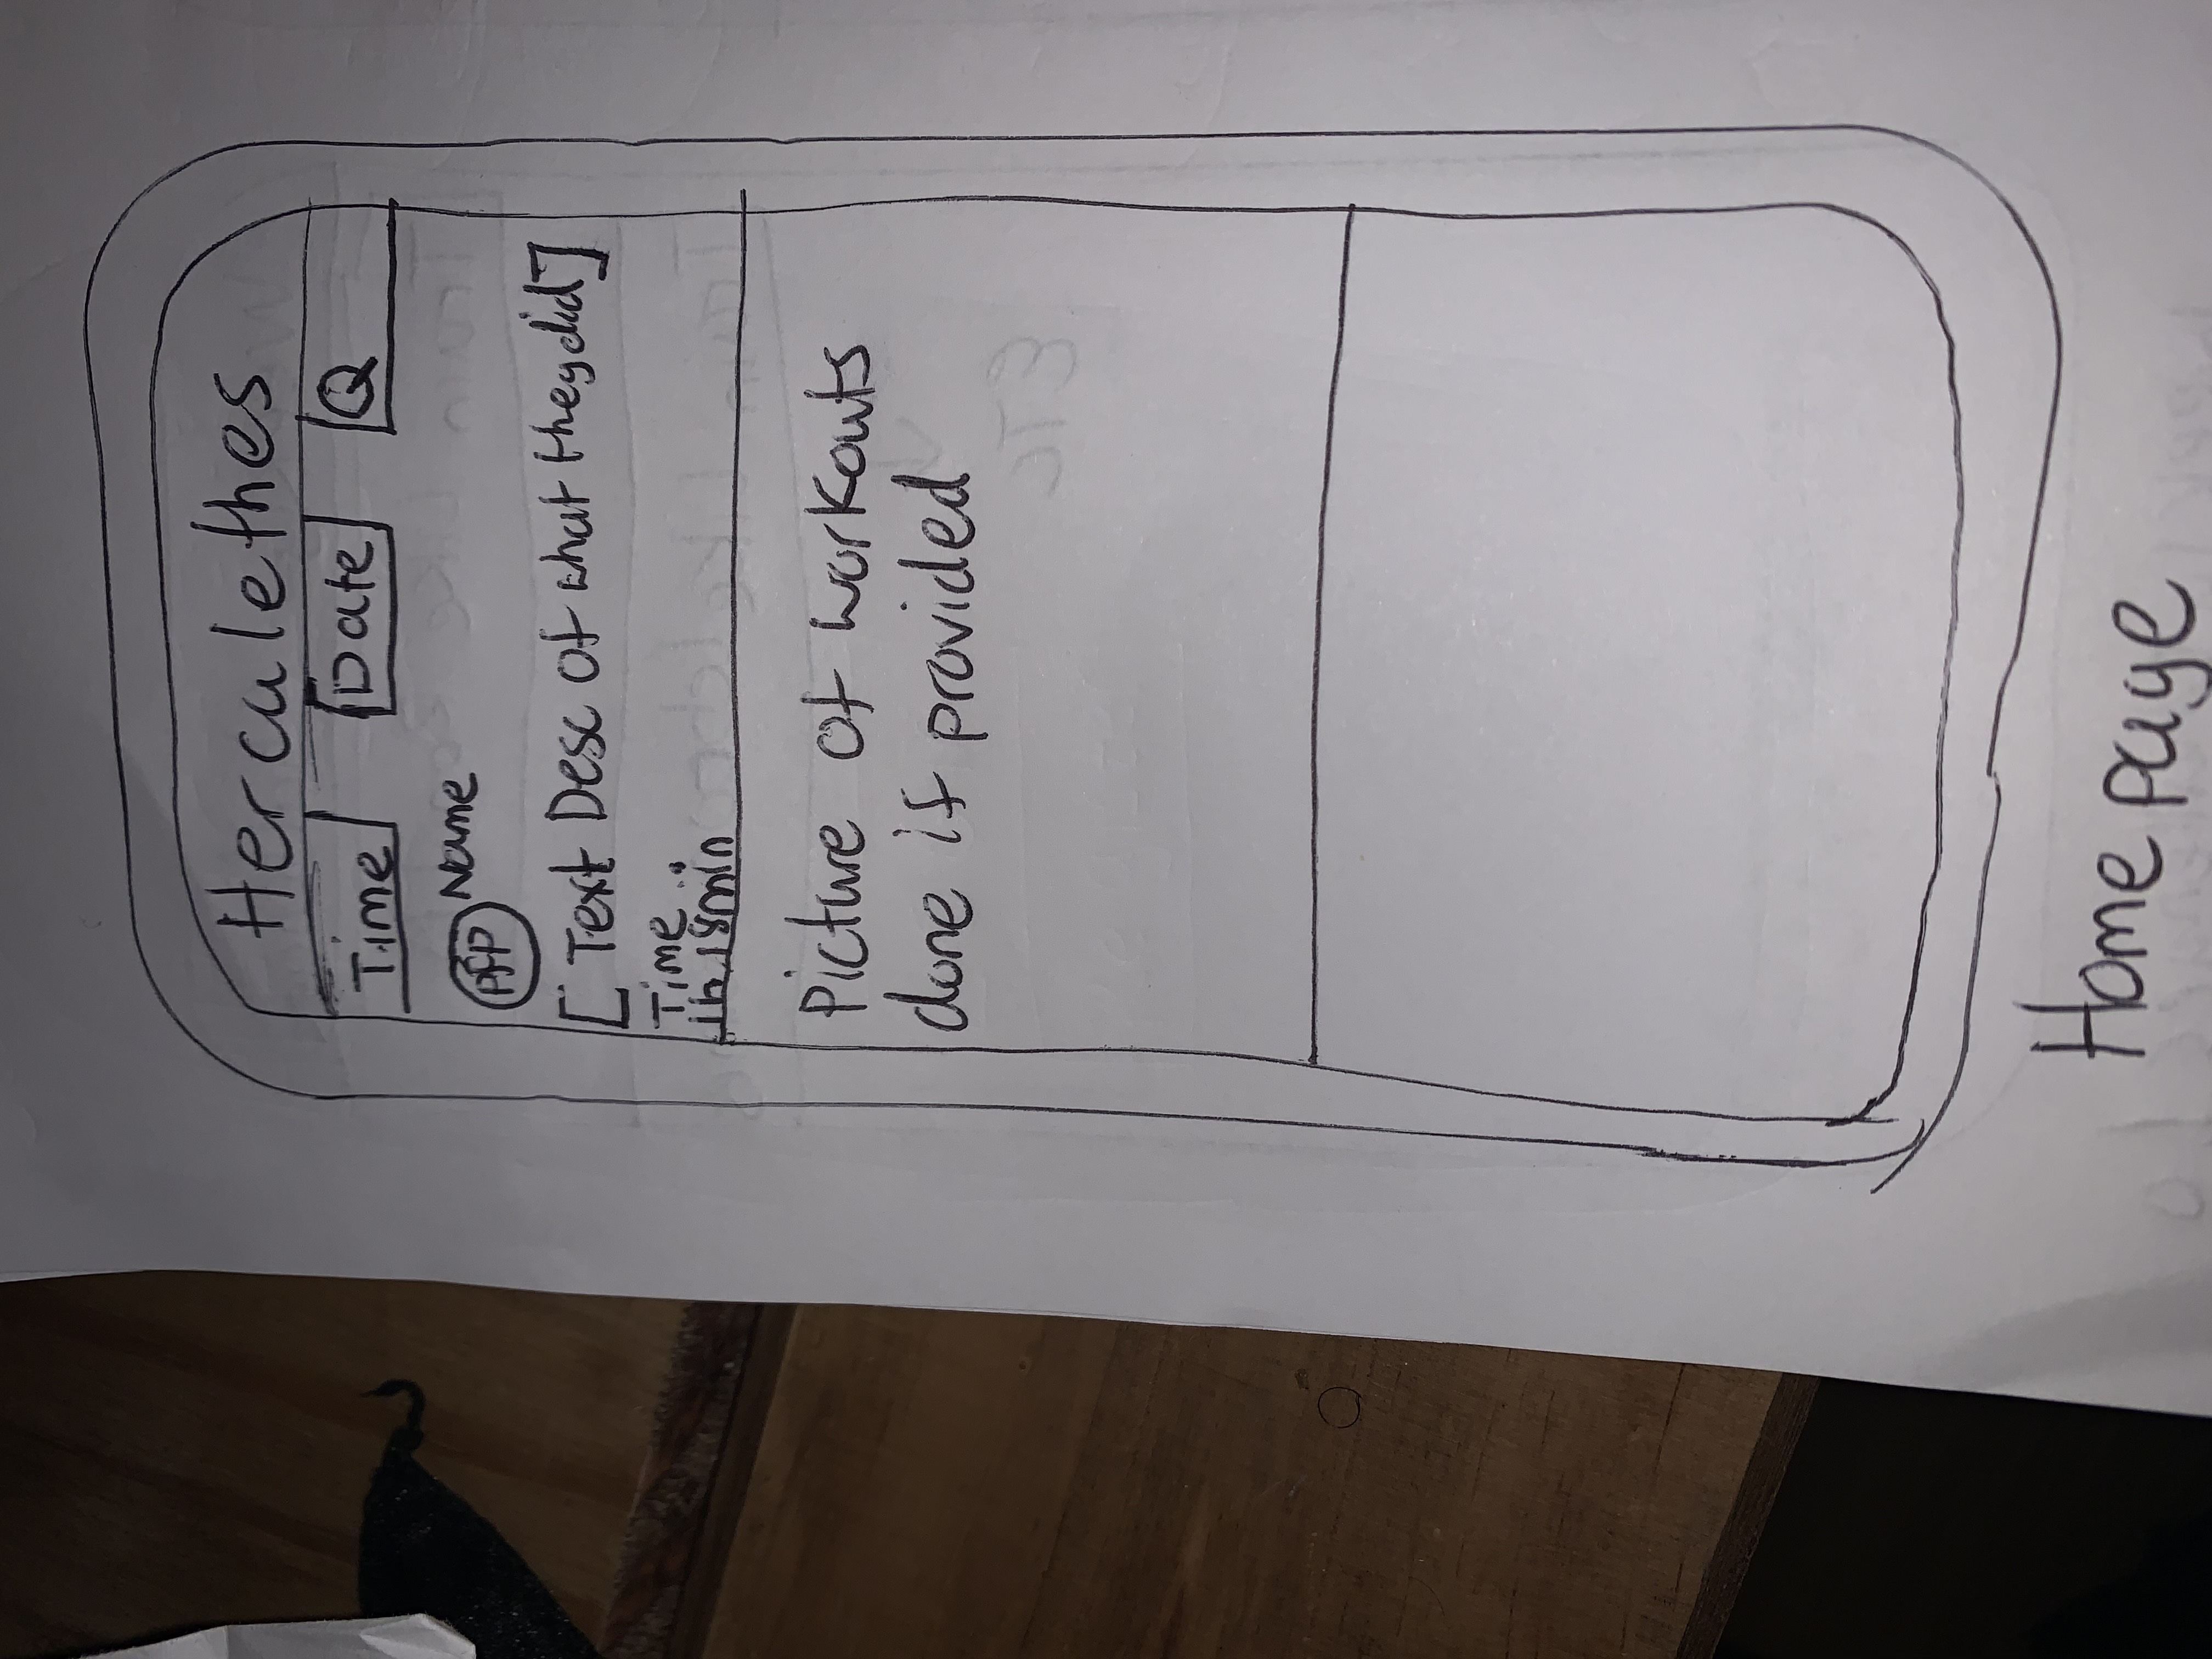 Herculethes
Time Date Q
PfP Name
[Text Desc of what they did]
Time:
1h 18min
Picture of workouts
done if provided
Home page